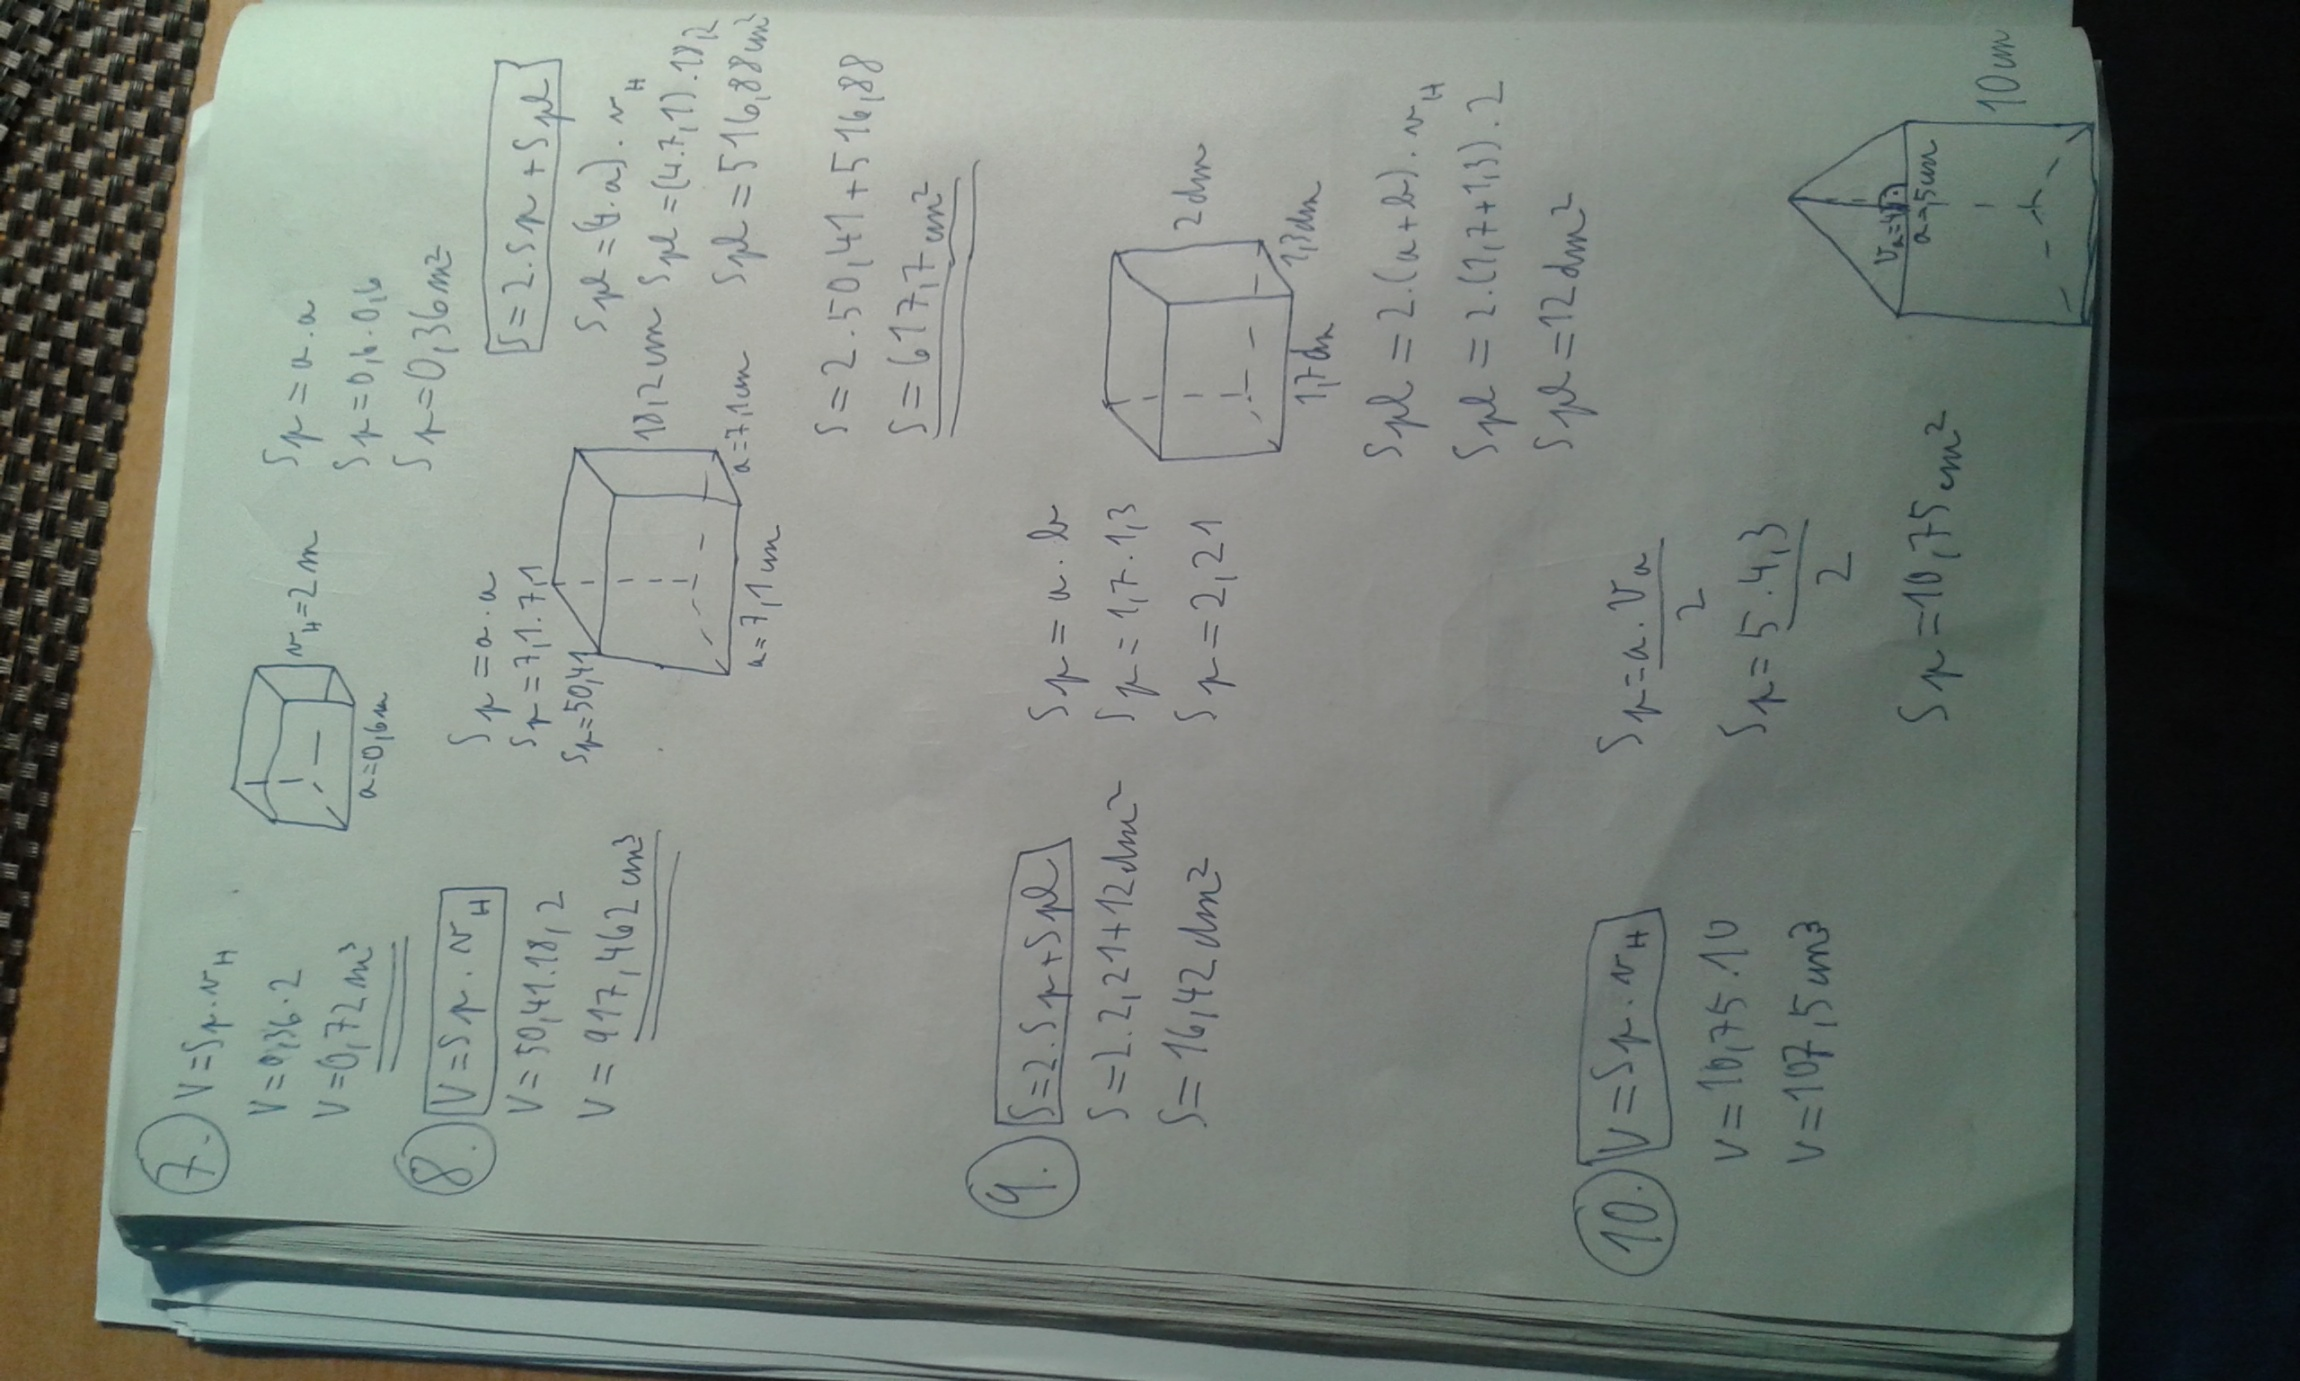 7. V = Sp . vH
V = 0,36 . 2
V = 0,72 m³
vH = 2 m
a = 0,6 m
Sp = a . a
Sp = 0,6 . 0,6
Sp = 0,36 m²
8. V = Sp . vH
V = 50,41 . 18,2
V = 917,462 cm³
Sp = a . a
Sp = 7,1 . 7,1
Sp = 50,41
18,2 cm
a = 7,1 cm
a = 7,1 cm
S = 2 . Sp + Spl
Spl = (4 . a) . vH
Spl = (4 . 7,1) . 18,2
Spl = 516,88 cm²
S = 2 . 50,41 + 516,88
S = 617,7 cm²
9. S = 2 . Sp + Spl
S = 2 . 2,21 + 12 dm²
S = 16,42 dm²
Sp = a . b
Sp = 1,7 . 1,3
Sp = 2,21
2 dm
1,3 dm
1,7 dm
Spl = 2 . (a + b) . vH
Spl = 2 . (1,7 + 1,3) . 2
Spl = 12 dm²
10. V = Sp . vH
V = 10,75 . 10
V = 107,5 cm³
Sp = a . va
2
Sp = 5 . 4,3
2
Sp = 10,75 cm²
va = 4
a = 5 cm
10 cm